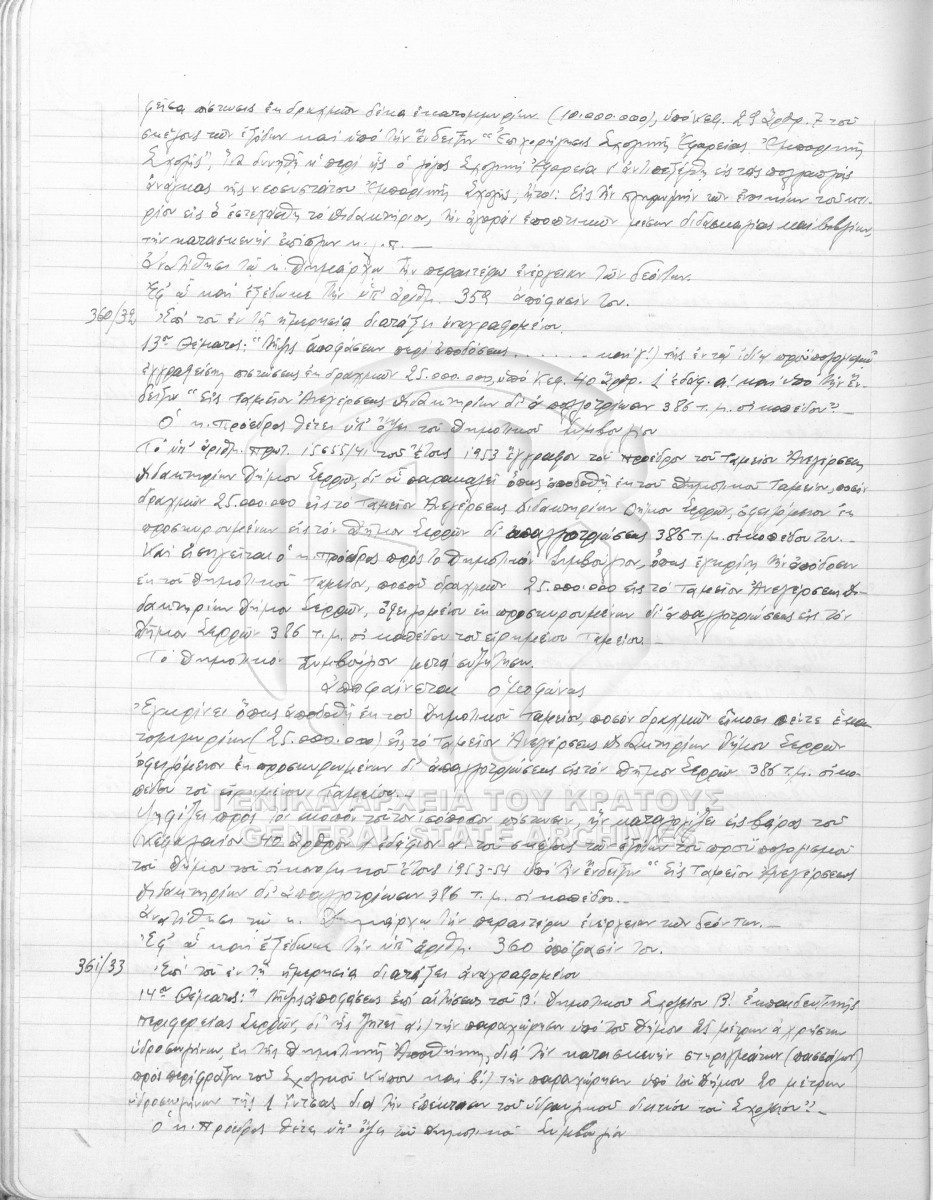 πίστωσις ἐκ δραχμῶν δέκα ἑκατομμυρίων (10.000.000), ὑπὸ Κεφ. 29 ἄρθρ. 7 τοῦ
σκέλους τῶν ἐξόδων καὶ ὑπὸ τὴν ἔνδειξιν "Ἐπιχορήγησις Σχολικῆς Ἐφορείας Ἐμπορικῆς
Σχολῆς", ἵνα δυνηθῇ ἡ περὶ ἧς ὁ λόγος Σχολικὴ Ἐφορεία ν' ἀντεπεξέλθῃ εἰς τὰς πολλαπλᾶς
ἀνάγκας τῆς νεοσυστάτου Ἐμπορικῆς Σχολῆς, ἤτοι: Εἰς τὴν πληρωμὴν τῶν ἐνοικίων τοῦ κτι-
ρίου εἰς ὃ ἐστεγάσθη τὸ Διδακτήριον, τὴν ἀγορὰν ἐποπτικῶν μέσων διδασκαλίας καὶ βιβλίων,
τὴν κατασκευὴν ἐπίπλων κ.λ.π. —
Ἀνατίθησι τῷ κ. Δημάρχῳ τὴν περαιτέρω ἐνέργειαν τῶν δεόντων.
Ἐφ' ᾧ καὶ ἐξέδωκε τὴν ὑπ' ἀριθμ. 359 ἀπόφασίν του.
360/32 Ἐπὶ τοῦ ἐν τῇ ἡμερησίᾳ διατάξει ἀναγραφομένου
13ου Θέματος: "Λῆψις ἀποφάσεων περὶ ἀποδόσεως . . . . . . . καὶ γ') τῆς ἐν τῷ ἰδίῳ προϋπολογισμῷ
ἐγγραφείσης πιστώσεως ἐκ δραχμῶν 25.000.000, ὑπὸ Κεφ. 40 ἄρθρ. 1 ἐδάφ. α' καὶ ὑπὸ τὴν ἔν-
δειξιν "Εἰς Ταμεῖον Ἀνεγέρσεως Διδακτηρίων δι' ἀπαλλοτρίωσιν 386 τ.μ. οἰκοπέδου". —
Ὁ κ. Πρόεδρος θέτει ὑπ' ὄψει τοῦ Δημοτικοῦ Συμβουλίου
Τὸ ὑπ' ἀριθμ. πρωτ. 15655/41 τοῦ ἔτους 1953 ἔγγραφον τοῦ Προέδρου τοῦ Ταμείου Ἀνεγέρσεως
Διδακτηρίων Δήμου Σερρῶν, δι' οὗ παρακαλεῖ ὅπως ἀποδοθῇ ἐκ τοῦ Δημοτικοῦ Ταμείου, ποσὸν
δραχμῶν 25.000.000 εἰς τὸ Ταμεῖον Ἀνεγέρσεως Διδακτηρίων Δήμου Σερρῶν, ὀφειλόμενον ἐκ
προσκυρουμένων εἰς τὸν Δῆμον Σερρῶν δι' ἀπαλλοτριώσεως 386 τ.μ. οἰκοπέδου του. —
Καὶ εἰσηγεῖται ὁ κ. Πρόεδρος πρὸς τὸ Δημοτικὸν Συμβούλιον, ὅπως ἐγκρίνῃ τὴν ἀπόδοσιν
ἐκ τοῦ Δημοτικοῦ Ταμείου, ποσοῦ δραχμῶν 25.000.000 εἰς τὸ Ταμεῖον Ἀνεγέρσεως Δι-
δακτηρίων Δήμου Σερρῶν, ὀφειλομένου ἐκ προσκυρουμένων δι' ἀπαλλοτριώσεως εἰς τὸν
Δῆμον Σερρῶν 386 τ.μ. οἰκοπέδου τοῦ εἰρημένου Ταμείου. —
Τὸ Δημοτικὸν Συμβούλιον μετὰ συζήτησιν.
Ἀποφαίνεται ὁμοφώνως
Ἐγκρίνει ὅπως ἀποδοθῇ ἐκ τοῦ Δημοτικοῦ Ταμείου, ποσὸν δραχμῶν εἴκοσι πέντε ἑκα-
τομμυρίων (25.000.000) εἰς τὸ Ταμεῖον Ἀνεγέρσεως Διδακτηρίων Δήμου Σερρῶν
ὀφειλόμενον ἐκ προσκυρωμένων δι' ἀπαλλοτριώσεως εἰς τὸν Δῆμον Σερρῶν 386 τ.μ. οἰκο-
πέδου τοῦ εἰρημένου Ταμείου. —
ΓΕΝΙΚΑ ΑΡΧΕΙΑ ΤΟΥ ΚΡΑΤΟΥΣ
Ψηφίζει πρὸς τὸν σκοπὸν τοῦτον ἰσόποσον πίστωσιν, ἣν καταλογίζει εἰς βάρος τοῦ
GENERAL STATE ARCHIVES
Κεφαλαίου 40 ἄρθρου 1 ἐδάφιον α' τοῦ σκέλους τῶν ἐξόδων τοῦ προϋπολογισμοῦ
τοῦ Δήμου τοῦ οἰκονομικοῦ ἔτους 1953-54 ὑπὸ τὴν ἔνδειξιν "Εἰς Ταμεῖον Ἀνεγέρσεως
Διδακτηρίων δι' ἀπαλλοτρίωσιν 386 τ.μ. οἰκοπέδου. —
Ἀνατίθησι τῷ κ. Δημάρχῳ τὴν περαιτέρω ἐνέργειαν τῶν δεόντων. —
Ἐφ' ᾧ καὶ ἐξέδωκε τὴν ὑπ' ἀριθμ. 360 ἀπόφασίν του.
361/33 Ἐπὶ τοῦ ἐν τῇ ἡμερησίᾳ διατάξει ἀναγραφομένου
14ου Θέματος: "Λῆψις ἀποφάσεως ἐπὶ αἰτήσεως τοῦ Β' Δημοτικοῦ Σχολείου Β' ἐκπαιδευτικῆς
περιφερείας Σερρῶν, δι' ἧς ζητεῖ α') τὴν παραχώρησιν ὑπὸ τοῦ Δήμου 25 μέτρων ἀχρήστων
ὑδροσωλήνων, ἐκ τῆς Δημοτικῆς Ἀποθήκης, διὰ τὴν κατασκευὴν στηριγμάτων (πασσάλων)
πρὸς περίφραξιν τοῦ Σχολικοῦ κήπου καὶ β') τὴν παραχώρησιν ὑπὸ τοῦ Δήμου 20 μέτρων
ὑδροσωλήνων τῆς 1 ἴντσας διὰ τὴν ἐπέκτασιν τοῦ ὑδραυλικοῦ δικτύου τοῦ Σχολείου". —
Ὁ κ. Πρόεδρος θέτει ὑπ' ὄψει τοῦ Δημοτικοῦ Συμβουλίου